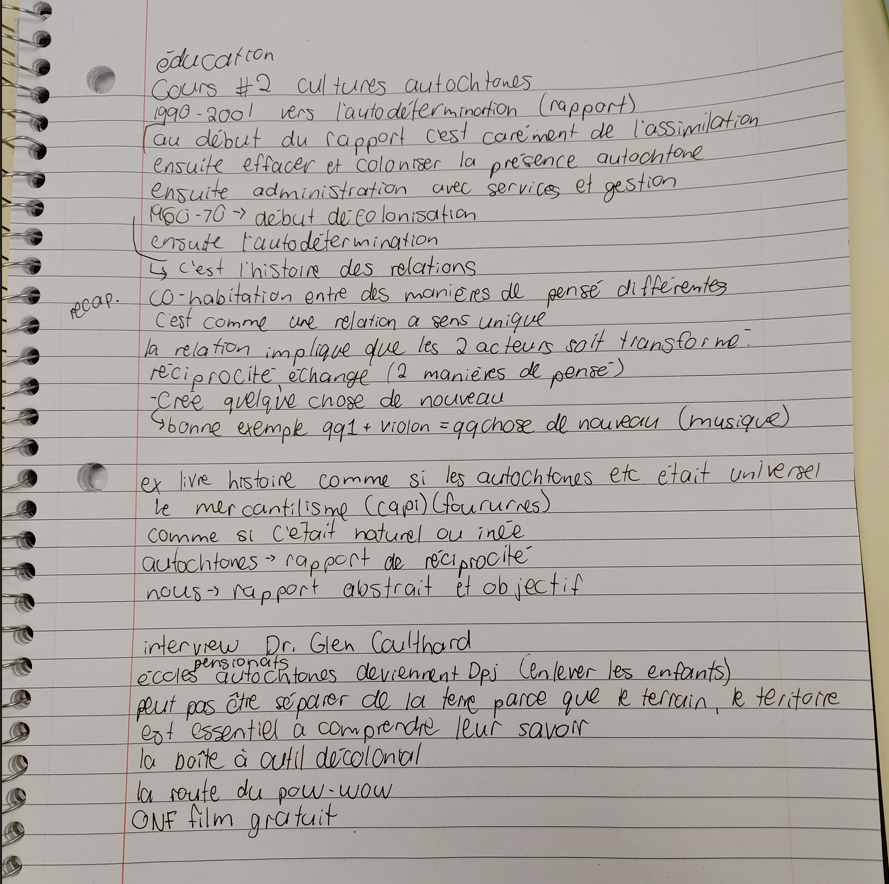 éducation
Cours #2 cultures autochtones
1990-2001 vers l'autodétermination (rapport)
au début du rapport c'est carément de l'assimilation
ensuite effacer et coloniser la présence autochtone
ensuite administration avec services et gestion
1960-70 → début décolonisation
ensuite l'autodétermination
↳ c'est l'histoire des relations
recap. co-habitation entre des manières de pensé différentes
c'est comme une relation a sens unique
la relation implique que les 2 acteurs soit transformé.
réciprocité échange (2 manières de pensé)
-Crée quelque chose de nouveau
↳bonne exemple qq1 + violon = qqchose de nouveau (musique)
ex livre histoire comme si les autochtones etc était universel
le mercantilisme (capi) (foururres)
comme si c'était naturel ou inée
autochtones → rapport de réciprocité
nous → rapport abstrait et objectif
interview Dr. Glen Coulthard
pensionats
écoles autochtones deviennent Dpj (enlever les enfants)
peut pas être séparer de la terre parce que le terrain, le teritoire
est essentiel a comprendre leur savoir
la boîte à outil décolonial
la route du pow-wow
ONF film gratuit